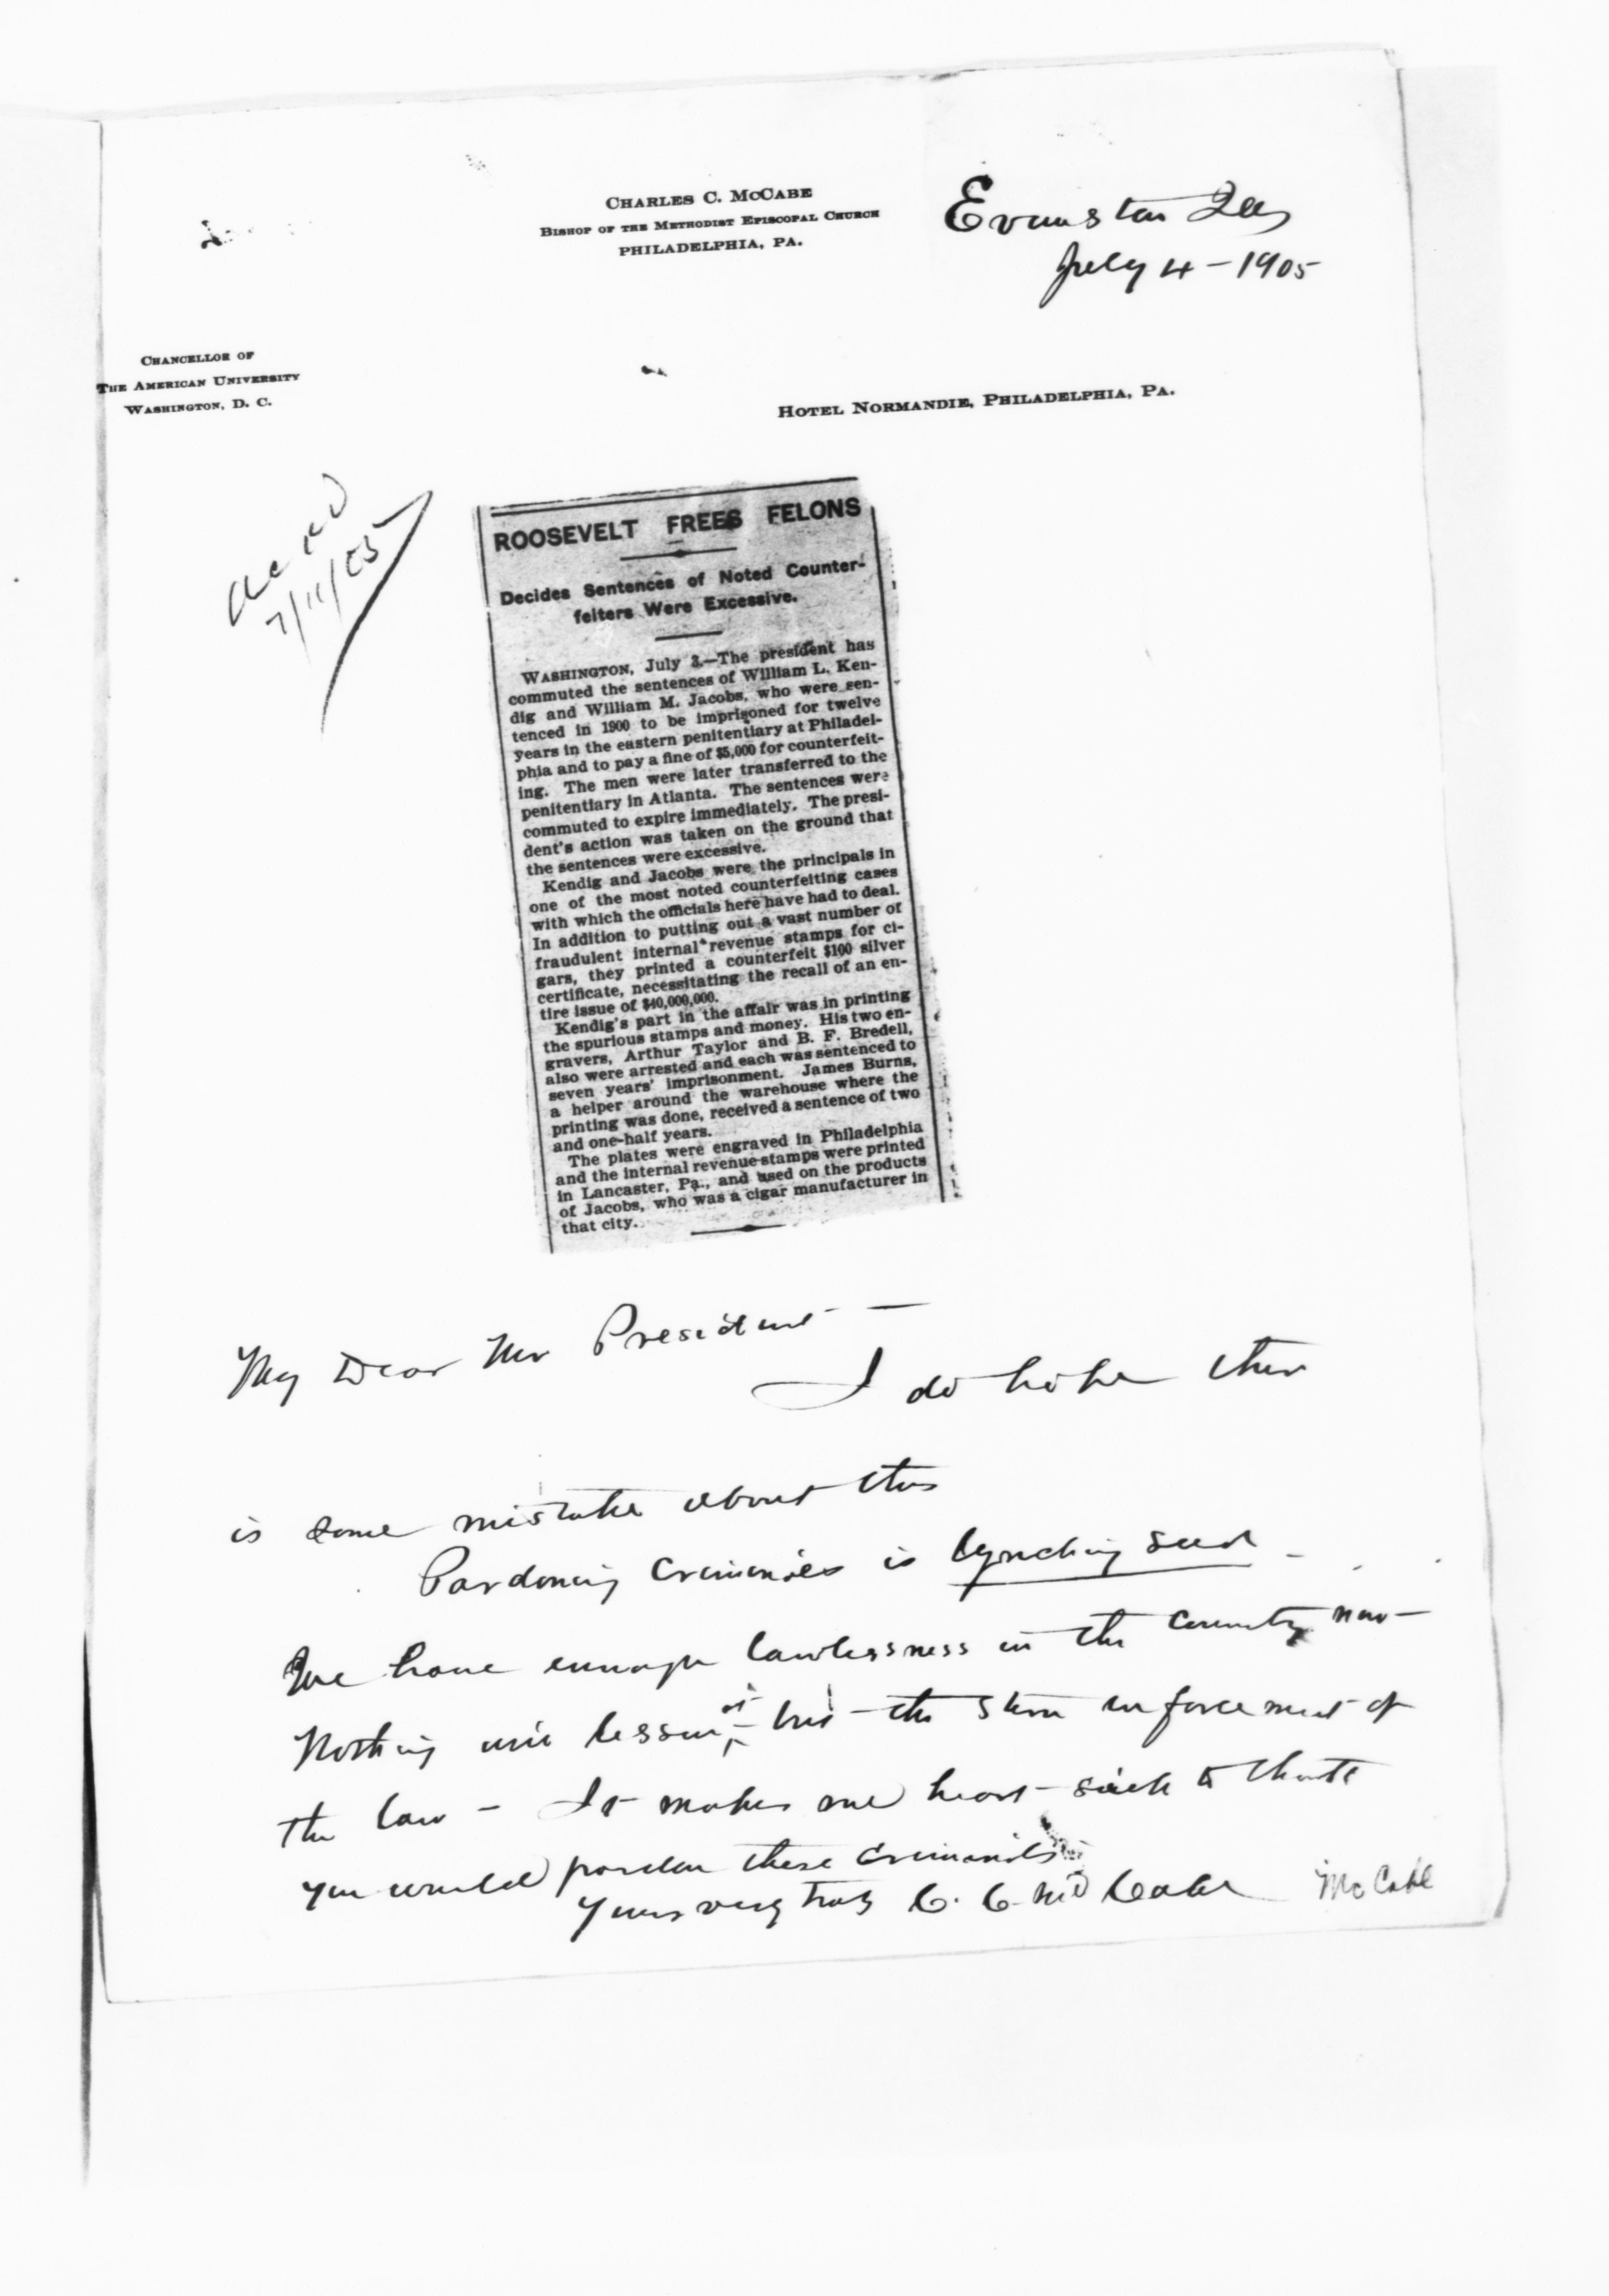 CHARLES C. McCABE
BISHOP OF THE METHODIST EPISCOPAL CHURCH
PHILADELPHIA, PA.
Evanston Ills
July 4 - 1905
CHANCELLOR OF
THE AMERICAN UNIVERSITY
WASHINGTON, D. C.
HOTEL NORMANDIE, PHILADELPHIA, PA.
7/11/05
ROOSEVELT FREES FELONS
Decides Sentences of Noted Counter-
feiters Were Excessive.
WASHINGTON, July 3.—The president has
commuted the sentences of William L. Ken-
dig and William M. Jacobs, who were sen-
tenced in 1900 to be imprisoned for twelve
years in the eastern penitentiary at Philadel-
phia and to pay a fine of $5,000 for counterfeit-
ing. The men were later transferred to the
penitentiary in Atlanta. The sentences were
commuted to expire immediately. The presi-
dent's action was taken on the ground that
the sentences were excessive.
Kendig and Jacobs were the principals in
one of the most noted counterfeiting cases
with which the officials here have had to deal.
In addition to putting out a vast number of
fraudulent internal revenue stamps for ci-
gars, they printed a counterfeit $100 silver
certificate, necessitating the recall of an en-
tire issue of $40,000,000.
Kendig's part in the affair was in printing
the spurious stamps and money. His two en-
gravers, Arthur Taylor and B. F. Bredell,
also were arrested and each was sentenced to
seven years' imprisonment. James Burns,
a helper around the warehouse where the
printing was done, received a sentence of two
and one-half years.
The plates were engraved in Philadelphia
and the internal revenue stamps were printed
in Lancaster, Pa., and used on the products
of Jacobs, who was a cigar manufacturer in
that city.
My Dear Mr President —
I do hope there
is some mistake about this
Pardoning Criminals is lynching seed -
We have enough lawlessness in the Country now —
Nothing will lessen it but the stern enforcement of
the law - It makes me heart-sick to think
you would pardon these criminals
Yours very truly C. C. McCabe McCabe